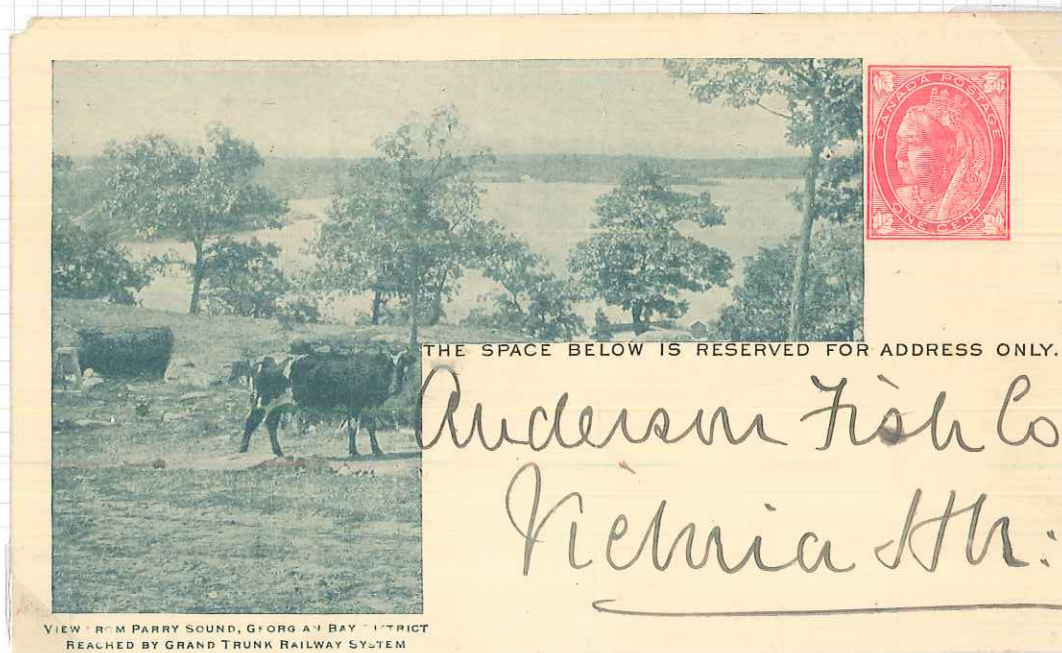 CANADA POSTAGE
ONE CENT
THE SPACE BELOW IS RESERVED FOR ADDRESS ONLY.
Anderson Fish Co
Victoria
VIEW FROM PARRY SOUND, GEORGIAN BAY DISTRICT
REACHED BY GRAND TRUNK RAILWAY SYSTEM